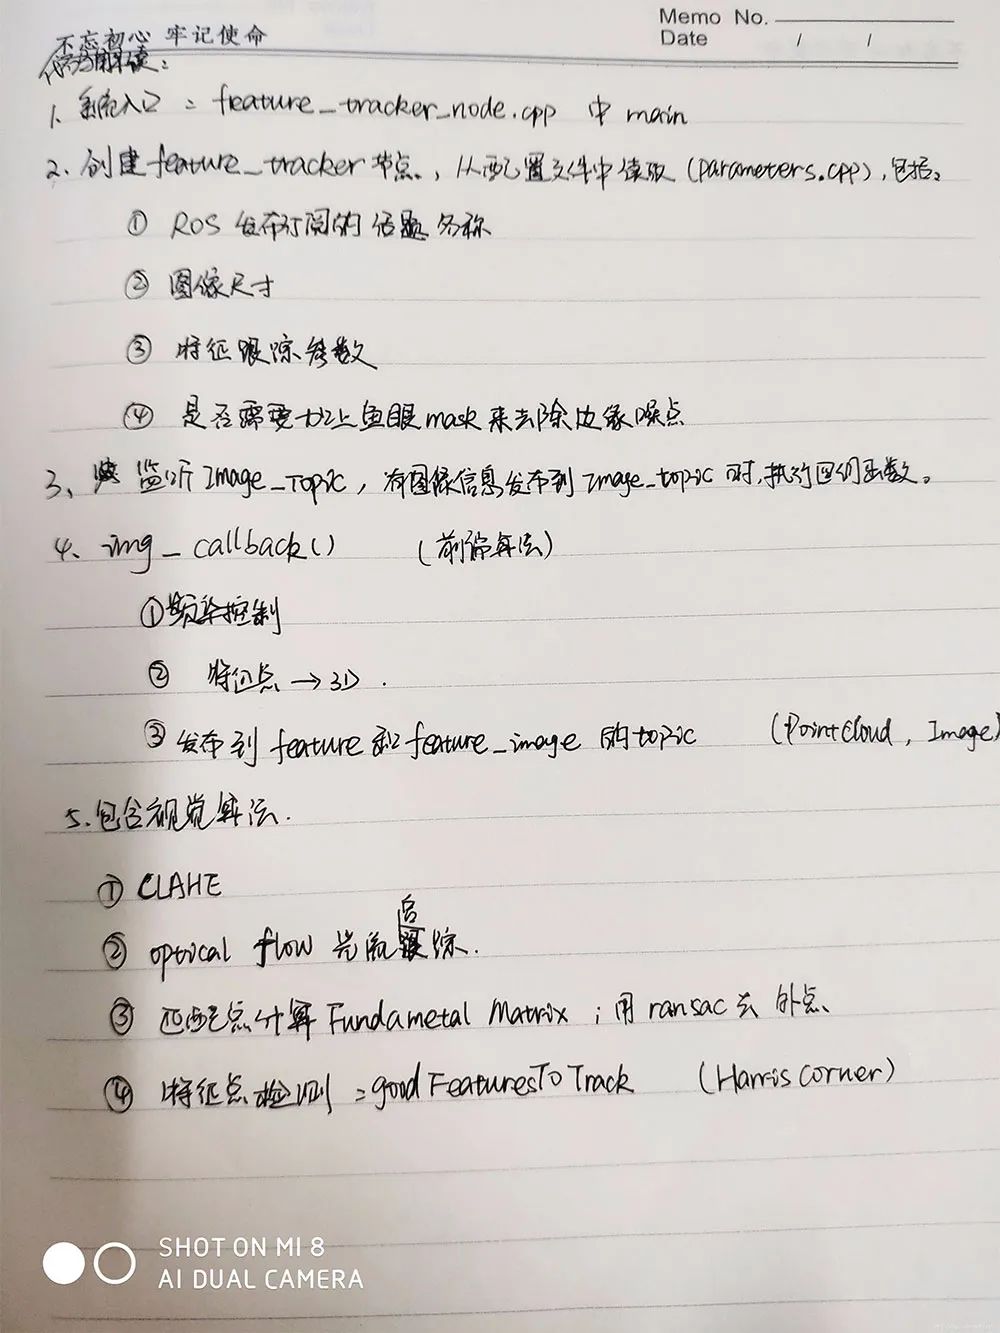 Memo No.
Date / /
不忘初心 牢记使命
代码解读：
1. 系统入口：feature_tracker_node.cpp 中 main
2. 创建feature_tracker节点，从配置文件中读取(parameters.cpp),包括：
① ROS 发布订阅的话题名称
② 图像尺寸
③ 特征跟踪参数
④ 是否需要加上鱼眼mask来去除边缘噪点
3、监听Image_Topic，有图像信息发布到Image_topic时,执行回调函数。
4、img_callback() (前端算法)
①频率控制
② 特征点→3D.
③ 发布到feature和feature_image的topic (PointCloud, Image)
5.包含视觉算法.
① CLAHE
② optical flow 光流跟踪.
③ 匹配点计算Fundametal Matrix；用ransac去外点
④ 特征点检测：goodFeaturesToTrack (Harris corner)
SHOT ON MI 8
AI DUAL CAMERA